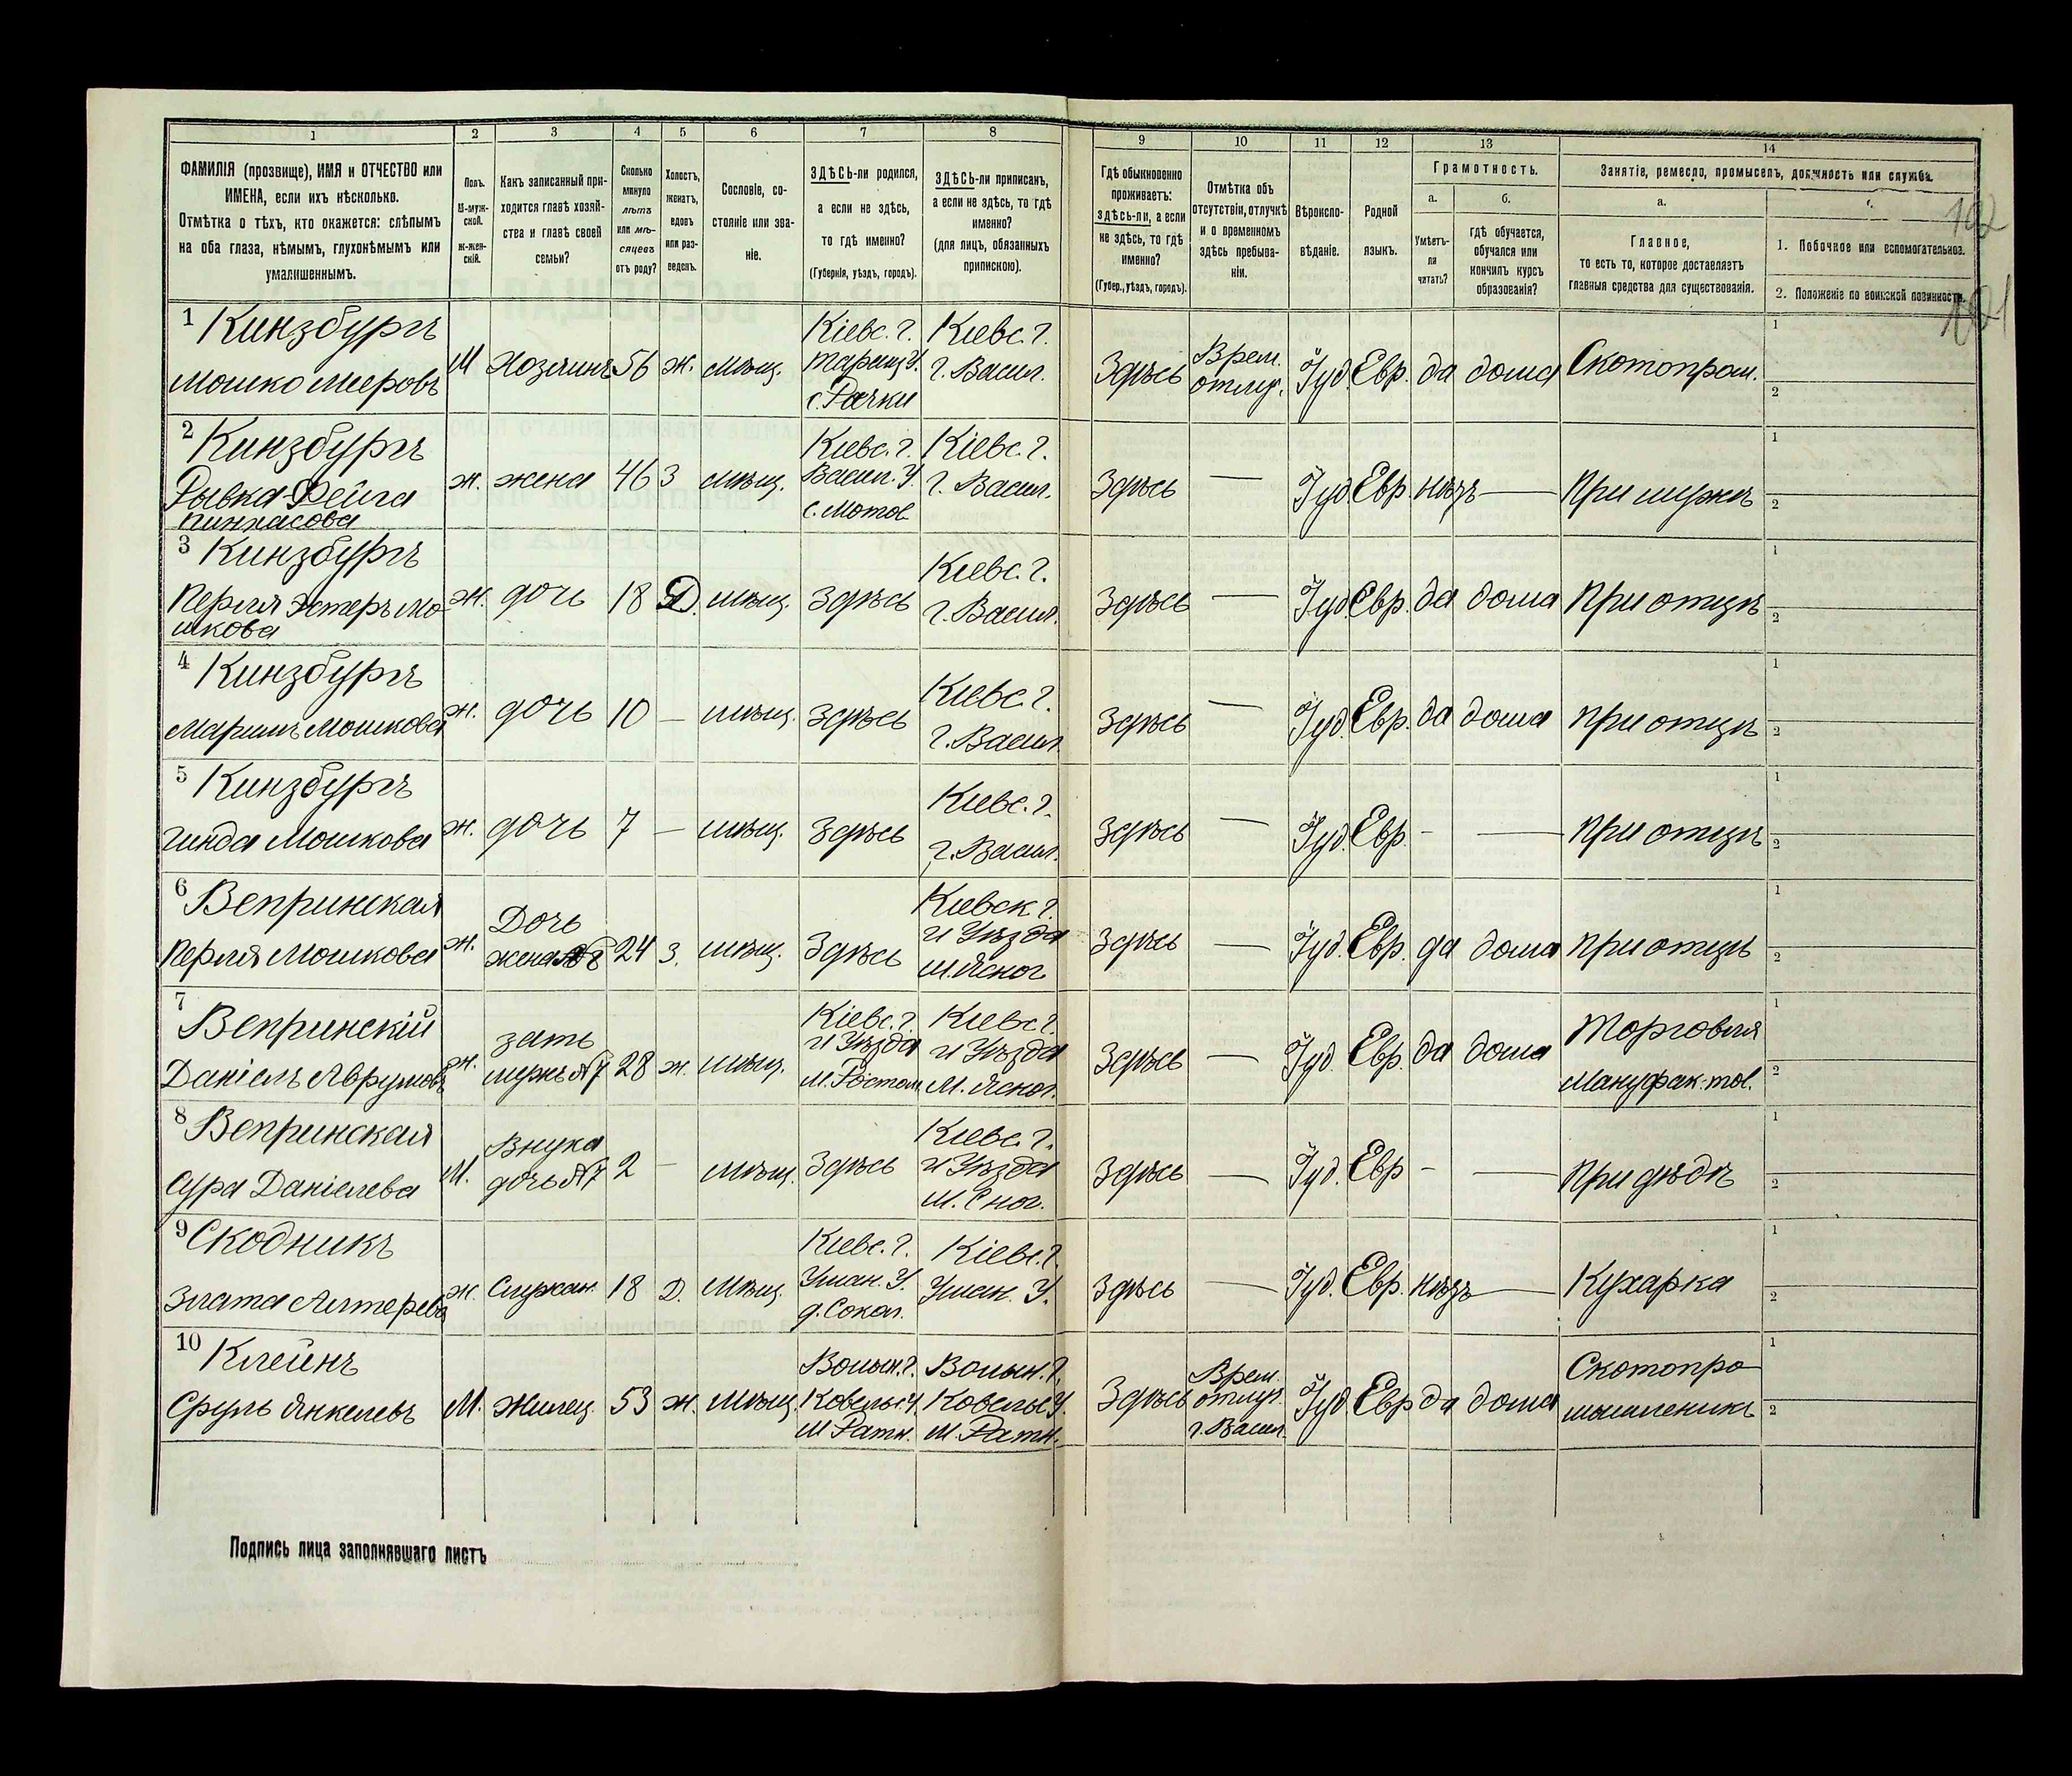 1
2
3
4
5
6
7
8
9
10
11
12
13
14
ФАМИЛІЯ (прозвище), ИМЯ и ОТЧЕСТВО или
ИМЕНА, если ихъ нѣсколько.
Отмѣтка о тѣхъ, кто окажется: слѣпымъ
на оба глаза, нѣмымъ, глухонѣмымъ или
умалишеннымъ.
Полъ.
М-муж-
ской.
Ж-жен-
скій.
Какъ записанный при-
ходится главѣ хозяй-
ства и главѣ своей
семьи?
Сколько
минуло
лѣтъ
или мѣ-
сяцевъ
отъ роду?
Холостъ,
женатъ,
вдовъ
или раз-
веденъ.
Сословіе, со-
стояніе или зва-
ніе.
ЗДѢСЬ-ли родился,
а если не здѣсь,
то гдѣ именно?
(Губернія, уѣздъ, городъ).
ЗДѢСЬ-ли приписанъ,
а если не здѣсь, то гдѣ
именно?
(для лицъ, обязанныхъ
припискою).
Гдѣ обыкновенно
проживаетъ:
здѣсь-ли, а если
не здѣсь, то гдѣ
именно?
(Губер., уѣздъ, городъ).
Отмѣтка объ
отсутствіи, отлучкѣ
и о временномъ
здѣсь пребыва-
ніи.
Вѣроиспо-
вѣданіе.
Родной
языкъ.
Грамотность.
а.
Умѣетъ-
ли
читать?
б.
гдѣ обучается,
обучался или
кончилъ курсъ
образованія?
Занятіе, ремесло, промыселъ, должность или служба.
а.
Главное,
то есть то, которое доставляетъ
главныя средства для существованія.
1. Побочное или вспомогательное.
2. Положеніе по воинской повинности.
1 Кинзбургъ
Мошко Мееровъ
М Хозяинъ 56 ж. мѣщ.
Кіевс. г.
Таращ. У.
с. Рачки
Кіевс. г.
г. Васил.
Здѣсь
Врем.
отлуч.
Іуд. Евр. да дома Скотопром.
1
2
2 Кинзбургъ
Рывка-Фейга
Пинхасова
ж. жена 46 З мѣщ.
Кіевс. г.
Васил. У.
с. Мотов.
Кіевс. г.
г. Васил.
Здѣсь — Іуд. Евр. нѣтъ — При мужѣ
1
2
3 Кинзбургъ
Перля Эстеръ Мо-
шкова
ж. дочь 18 Д. мѣщ. Здѣсь
Кіевс. г.
г. Васил.
Здѣсь — Іуд. Евр. да дома При отцѣ
1
2
4 Кинзбургъ
Маримъ Мошкова
ж. дочь 10 — мѣщ. Здѣсь
Кіевс. г.
г. Васил.
Здѣсь — Іуд. Евр. да дома При отцѣ
1
2
5 Кинзбургъ
Гинда Мошкова
ж. дочь 7 — мѣщ. Здѣсь
Кіевс. г.
г. Васил.
Здѣсь — Іуд. Евр. - — При отцѣ
1
2
6 Вепринская
Перля Мошкова
ж.
Дочь
жена №8
24 З. мѣщ. Здѣсь
Кіевск г.
и Уѣзда
м. Ясног.
Здѣсь — Іуд. Евр. да дома При отцѣ
1
2
7
Вепринскій
Даніелъ Аврумовъ
ж.
зять
мужъ №7
28 ж. мѣщ.
Кіевс. г.
и Уѣзда
М. Ростом
Кіевс г.
и Уѣзда
М. Ясног.
Здѣсь — Іуд. Евр. да дома
Торговля
Мануфак. тов.
1
2
8 Вепринская
Сура Даніелева
М.
Внука
дочь №7
2 — мѣщ. Здѣсь
Кіевс. г.
и Уѣзда
м. Сног.
Здѣсь — Іуд. Евр - — При дѣдѣ
1
2
9 Скодникъ
Злата Алтерева
ж. Служан. 18 Д. Мѣщ.
Кіевс. г.
Уман. У.
д. Сокол.
Кіевс. г.
Уман. У.
Здѣсь — Іуд. Евр. нѣтъ — Кухарка
1
2
10 Клейнъ
Сруль Янкелевъ
М. Жилец 53 ж. Мѣщ.
Волын. г.
Ковельс. У.
М Ратн.
Волын. г.
Ковельс У.
М. Ратн.
Здѣсь
Врем.
отлуч.
г. Васил.
Іуд. Евр да дома
Скотопро
мышленикъ
1
2
Подпись лица заполнявшаго листъ